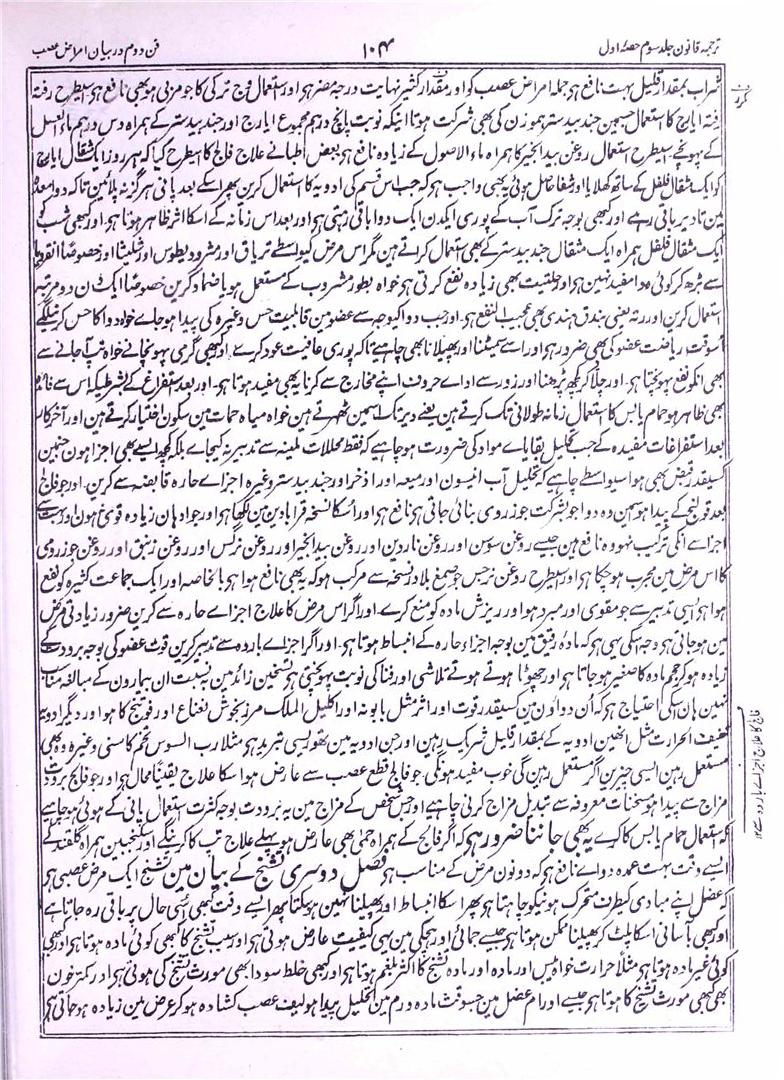 ترجمہ قانون جلد سوم حصۂ اول ۱۰۴ فن دوم در بیان امراض عصب
شراب بمقدار قلیل بہت نافع ہو جملہ امراض عصب کو اور مقدار کثیر نہایت درجہ مضر ہو اور استعمال وج ترکی کا جو مربی ہو بھی نافع ہو اسیطرح رفتہ
رفتہ ایارج کا استعمال جسمین جند بیدستر ہموزن کی بھی شرکت ہو تا اینکہ نوبت پانچ درہم مجموع ایارج اور جند بیدستر کے ہمراہ دس درہم ماء العسل
کے پہونچے اسیطرح استعمال روغن بید انجیر کا ہمراہ ماء الاصول کے زیادہ نافع ہو بعض اطبا نے علاج فالج کا اسطرح کیا کہ ہر روز ایک مثقال ایارج
کو ایک مثقال فلفل کے ساتھ کھلایا اور شفا حاصل ہوئی یہ بھی واجب ہو کہ جب اس قسم کی ادویہ کا استعمال کرین پھر اسکے بعد پانی ہرگز نہ پلائین تاکہ دوا معدہ
مین تا دیر باقی رہے اور کبھی بوجہ ترک آب کے پوری ایکدن ایک دوا باقی رہتی ہو اور بعد اس زمانہ کے اسکا اثر ظاہر ہوتا ہو اور کبھی شب کو
ایک مثقال فلفل ہمراہ ایک مثقال جند بیدستر کے بھی استعمال کراتے ہین مگر اس مرض کیواسطے تریاق اور مشرودیطوس اور شلیثا اور خصوصًا انقرویا
سے بڑھ کر کوئی دوا مفید نہین ہو اور حلتیت بھی زیادہ نفع کرتی ہو خواہ بطور مشروب کے مستعمل ہو یا ضماد کرین خصوصًا ایک دن دو مرتبہ
استعمال کرین اور رتہ یعنی بندق ہندی بھی عجیب النفع ہو۔ اور جب دوا کیوجہ سے عضو مین قابلیت حس وغیرہ کی پیدا ہو جاے خواہ دوا کا حس کرنے لگے
اسوقت ریاضت عضو کی بھی ضرور ہو اور اسے سمیٹنا اور پھیلانا بھی چاہیے تاکہ پوری عافیت عود کرے۔ اور کبھی گرمی پہونچانے خواہ تپ آجانے سے
بھی انکو نفع پہونچتا ہو۔ اور چلا کر کچھ پڑھنا اور زور سے اداے حروف اپنے مخارج سے کرنا یہ بھی مفید ہوتا ہو۔ اور بعد استفراغ کے بشرطیکہ اس سے فائدہ
بھی ظاہر ہو حمام یابس کا استعمال زمانہ طولانی تک کرتے ہین یعنے دیر تک اسمین ٹھہرتے ہین خواہ میاہ حمات مین سکون اختیار کرتے ہین اور آخر کار
بعد استفراغات مفیدہ کے جب تحلیل بقایاے مواد کی ضرورت ہو چاہیے کہ فقط محللات ملینہ سے تدبیر نہ کیجاے بلکہ کچھ ایسے بھی اجزا ہون جنمین
کسیقدر قبض بھی ہو اسیواسطے چاہیے کہ تحلیل آب انیسون اور میعہ اور اذخر اور جند بیدستر وغیرہ اجزاے حارہ قابضہ سے کرین۔ اور جو فالج
بعد قولنج کے پیدا ہو اسمین وہ دوا جو بشرکت جوز رومی بنائی جاتی ہو نافع ہو اور اسکا نسخہ قرابادین مین لکھا ہو اور جو ادہان زیادہ قوی نہون اور بہت سے
اجزا سے انکی ترکیب نہو وہ نافع ہین جیسے روغن سوسن اور روغن ناردین اور روغن بید انجیر اور روغن نرگس اور روغن زنبق اور روغن جوز رومی
کا اس مرض مین مجرب ہو چکا ہو اور اسیطرح روغن نرجس جو صمغ بلادر نسخہ سے مرکب ہو کہ یہ بھی نافع ہوا ہو بالخاصہ اور ایک جماعت کثیرہ کو نفع
ہوا ہو ایسی تدبیر سے جو مقوی اور مبرد ہو اور ریزش مادہ کو منع کرے۔ اور اگر اس مرض کا علاج اجزاے حارہ سے کرین ضرور زیادتی مرض
مین ہو جاتی ہو وجہ اسکی یہی ہو کہ مادۂ رقیق مین بوجہ اجزاء حارہ کے انبساط ہوتا ہو۔ اور اگر اجزاے باردہ سے تدبیر کرین قوت عضو کی بوجہ برودت کے
زیادہ ہو کر حجم مادہ کا صغیر ہو جاتا ہو اور چھوٹا ہوتے ہوتے تلاشی اور فنا کی نوبت پہونچتی ہو تسخین زائد مین بہ نسبت ان بیمارون کے مبالغہ مناسب
نہین ہان اسکی احتیاج ہو کہ ان دواون مین کسیقدر قوت اور اثر مثل بابونہ اور اکلیل الملک مرزنجوش نعناع اور فوتنج کا ہو اور دیگر ادویہ
خفیف الحرارت مثل انھین ادویہ کے بمقدار قلیل شریک رہین اور جن ادویہ مین تھوڑی سی تبرید ہو مثلًا رب السوس تخم کاسنی وغیرہ وہ بھی
مستعمل رہین ایسی چیزین اگر مستعمل رہین گی خوب مفید ہونگی جو فالج قطع عصب سے عارض ہو اسکا علاج یقینًا محال ہو اور جو فالج برودت
مزاج سے پیدا ہو مسخنات معروفہ سے تبدیل مزاج کرنی چاہیے اور جس شخص کے مزاج مین یہ برودت بوجہ کثرت استعمال پانی کے ہوئی ہو چاہیے
کہ استعمال حمام یابس کا کرے یہ بھی جاننا ضرور ہو کہ اگر فالج کے ہمراہ حمی بھی عارض ہو پہلے علاج تپ کا کرینگے اور سکنجبین ہمراہ گلقند کے
ایسے وقت بہت عمدہ دواے نافع ہو کہ دونون مرض کے مناسب ہو فصل دوسری تشنج کے بیان مین تشنج ایک مرض عصبی ہو
کہ عضل اپنے مبادی کیطرف متحرک ہونیکو چاہتا ہو پھر اسکا انبساط اور پھیلنا نہین ہو سکتا پھر ایسے وقت کبھی اسی حال پر باقی رہ جاتا ہے
اور کبھی بآسانی اسکا پلٹ کر پھیلنا ممکن ہوتا ہو جیسے جمائی اور ہچکی مین یہی کیفیت عارض ہوتی ہو اور سبب تشنج کا کبھی کوئی مادہ ہوتا ہو اور کبھی
کوئی غیر مادہ ہوتا ہو مثلًا حرارت خواہ یبس اور مادہ اور مادہ تشنج کا اکثر بلغم ہوتا ہو اور کبھی خلط سودا بھی مورث تشنج کی ہوتی ہو اور کمتر خون
بھی کبھی مورث تشنج کا ہوتا ہو جیسے اورام عضل مین جسوقت مادہ ورم مین تخلیل پیدا ہو لیف عصب کشادہ ہو کر عرض مین زیادہ ہو جاتی ہو
فالج کا علاج اجزاے باردہ سے ۱۲